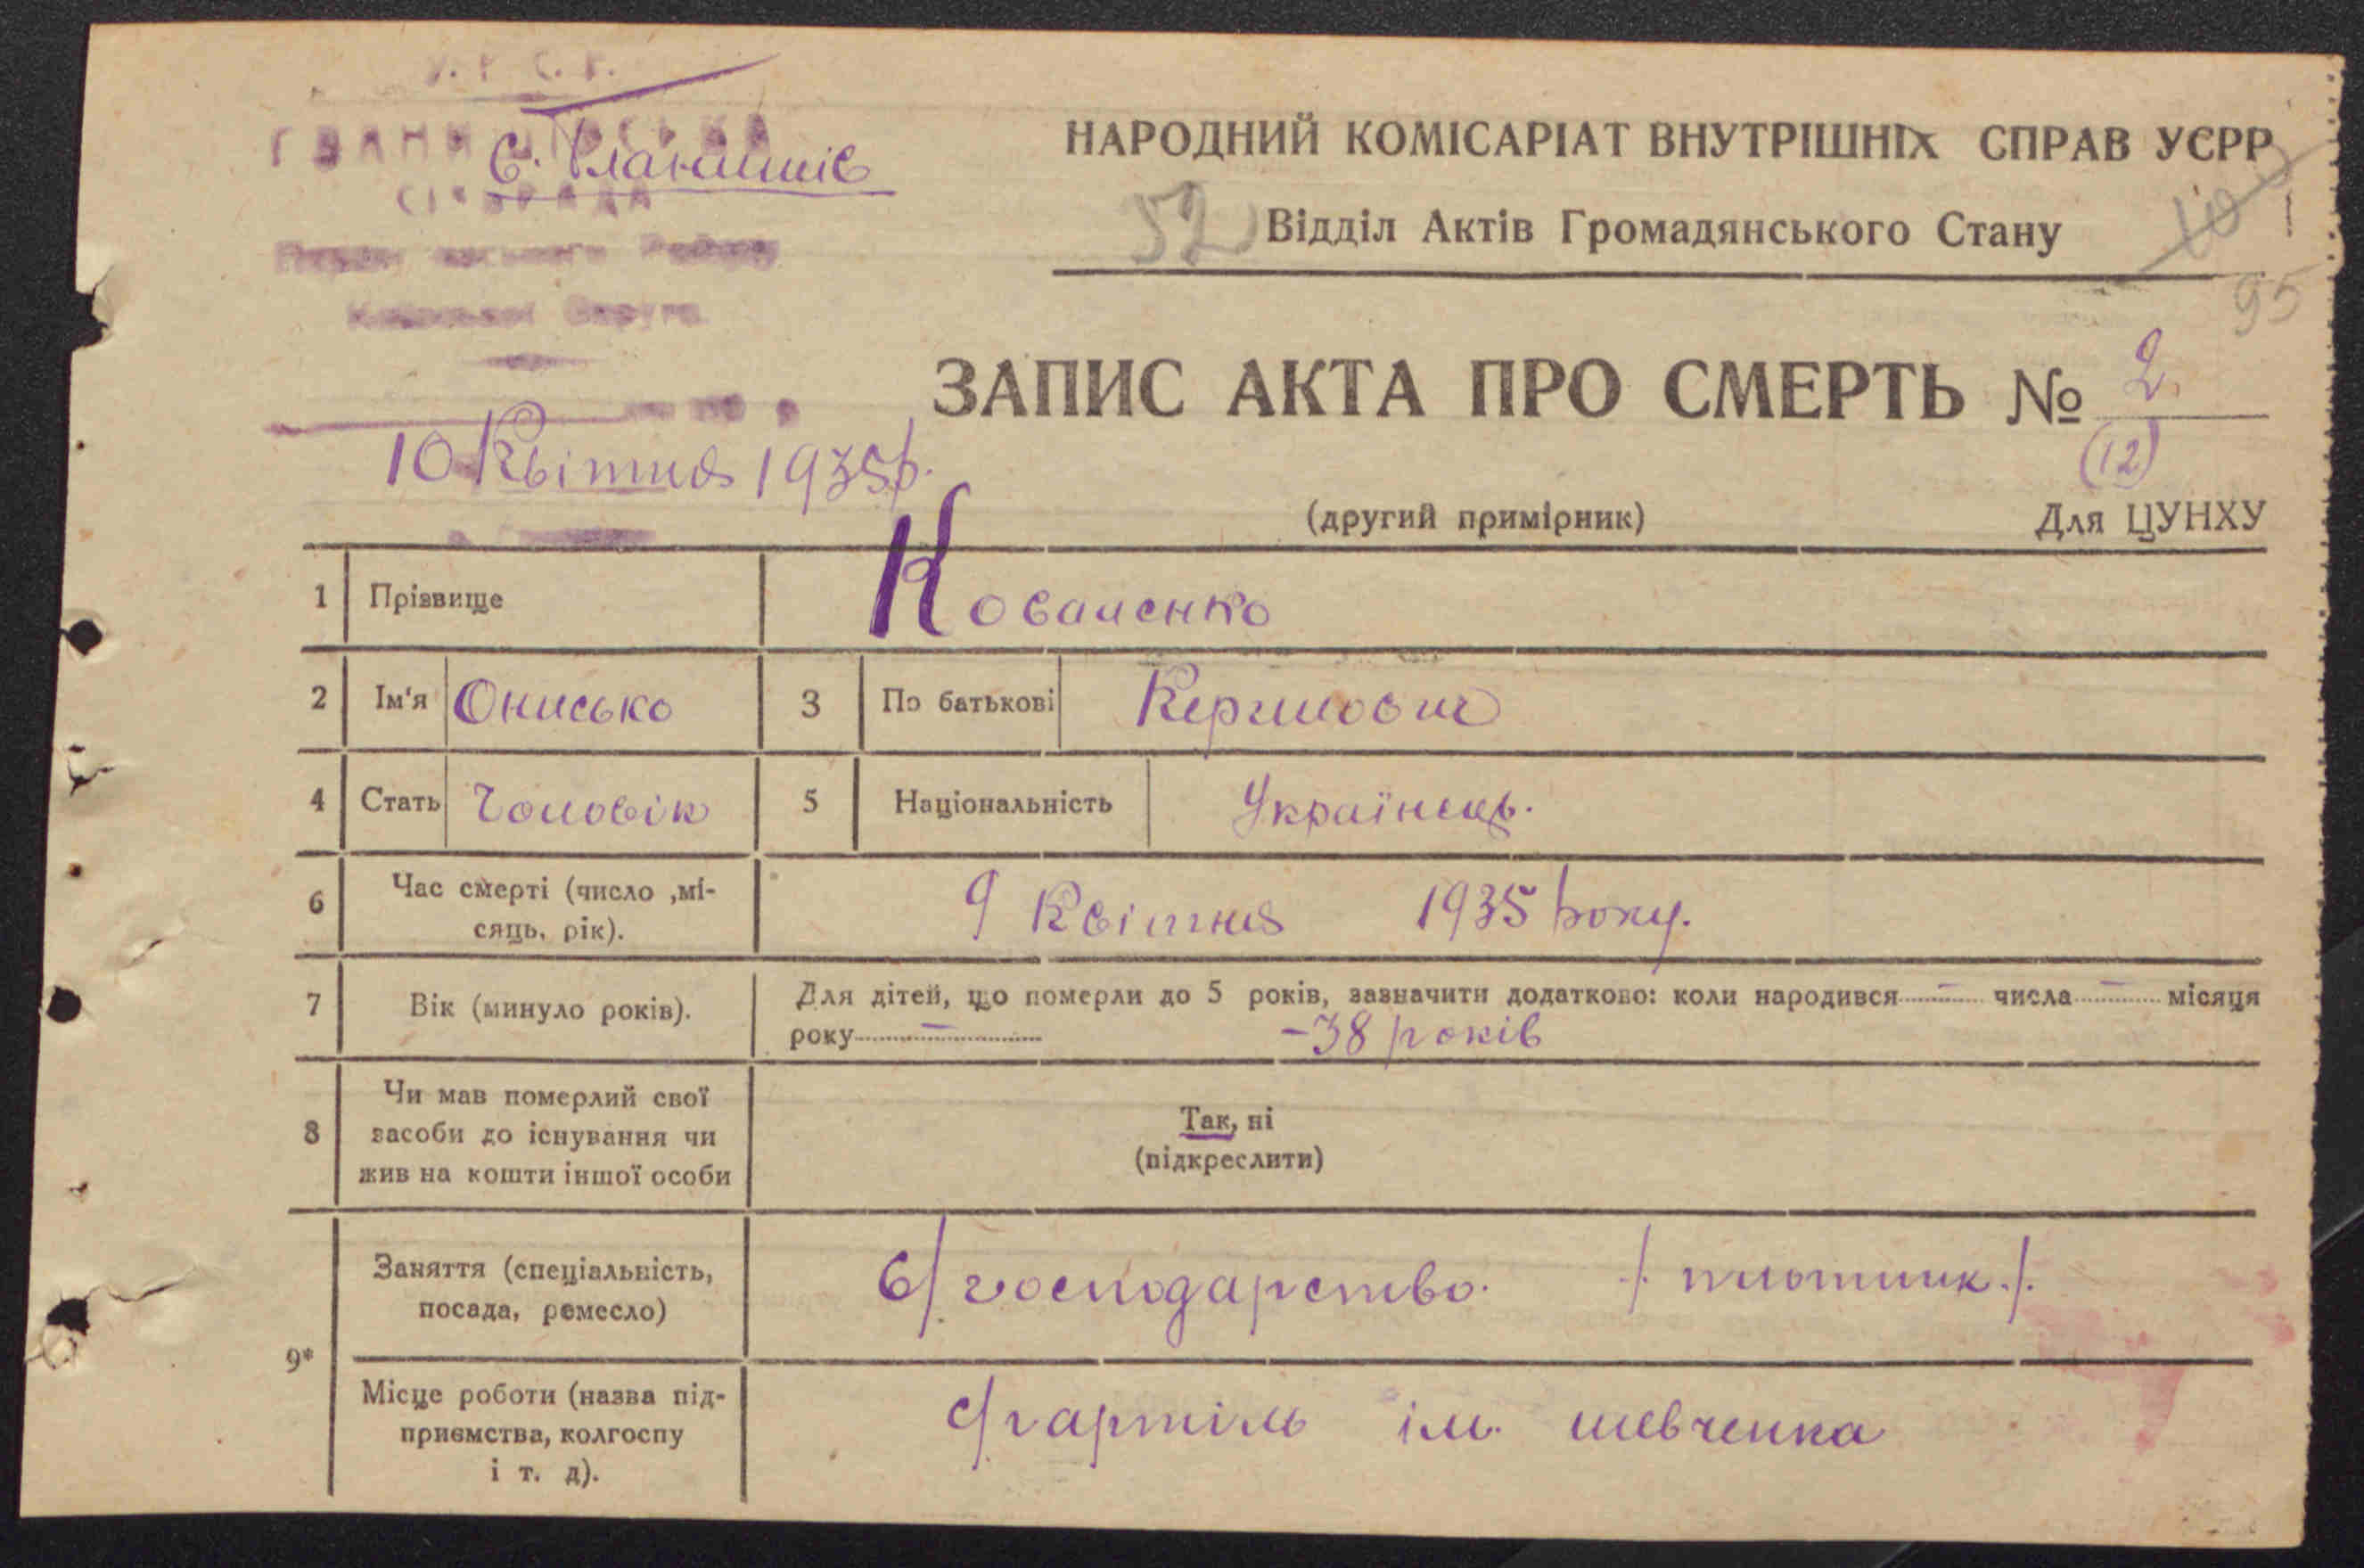 У. Р. С. Р.
НАРОДНИЙ КОМІСАРІАТ ВНУТРІШНІХ СПРАВ УСРР
52 Відділ Актів Громадянського Стану
95
ЗАПИС АКТА ПРО СМЕРТЬ № 2
(12)
10 Квітня 1935 р.
(другий примірник) Для ЦУНХУ
1 Прізвище Коваленко
2 Ім'я Онисько 3 По батькові
4 Стать Чоловік 5 Національність Українець.
6 Час смерті (число ,мі-
сяць, рік). 9 Квітня 1935 року.
7 Вік (минуло років). Для дітей, що померли до 5 років, зазначити додатково: коли народився — числа — місяця
року — -38 років
8 Чи мав померлий свої
засоби до існування чи
жив на кошти іншої особи
Так, ні
(підкреслити)
9*
Заняття (спеціальність,
посада, ремесло) С/господарство. /. плотник ./.
Місце роботи (назва під-
приємства, колгоспу
і т. д). С/г артіль ім. шевченка